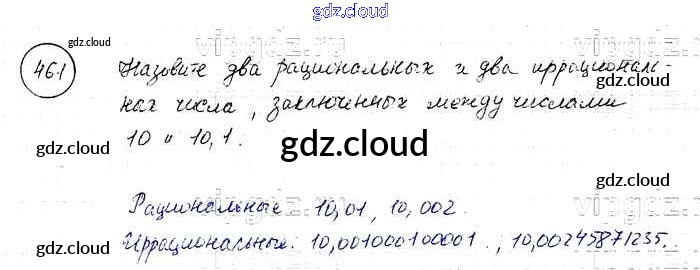 gdz.cloud
gdz.cloud
gdz.cloud
461
Назовите два рациональных и два иррациональ-
ных числа, заключенных между числами
10 и 10,1.
gdz.cloud
gdz.cloud
gdz.cloud
Рациональные 10,01, 10,002.
Иррациональные: 10,001000100001., 10,00245871235.
gdz.cloud
gdz.cloud